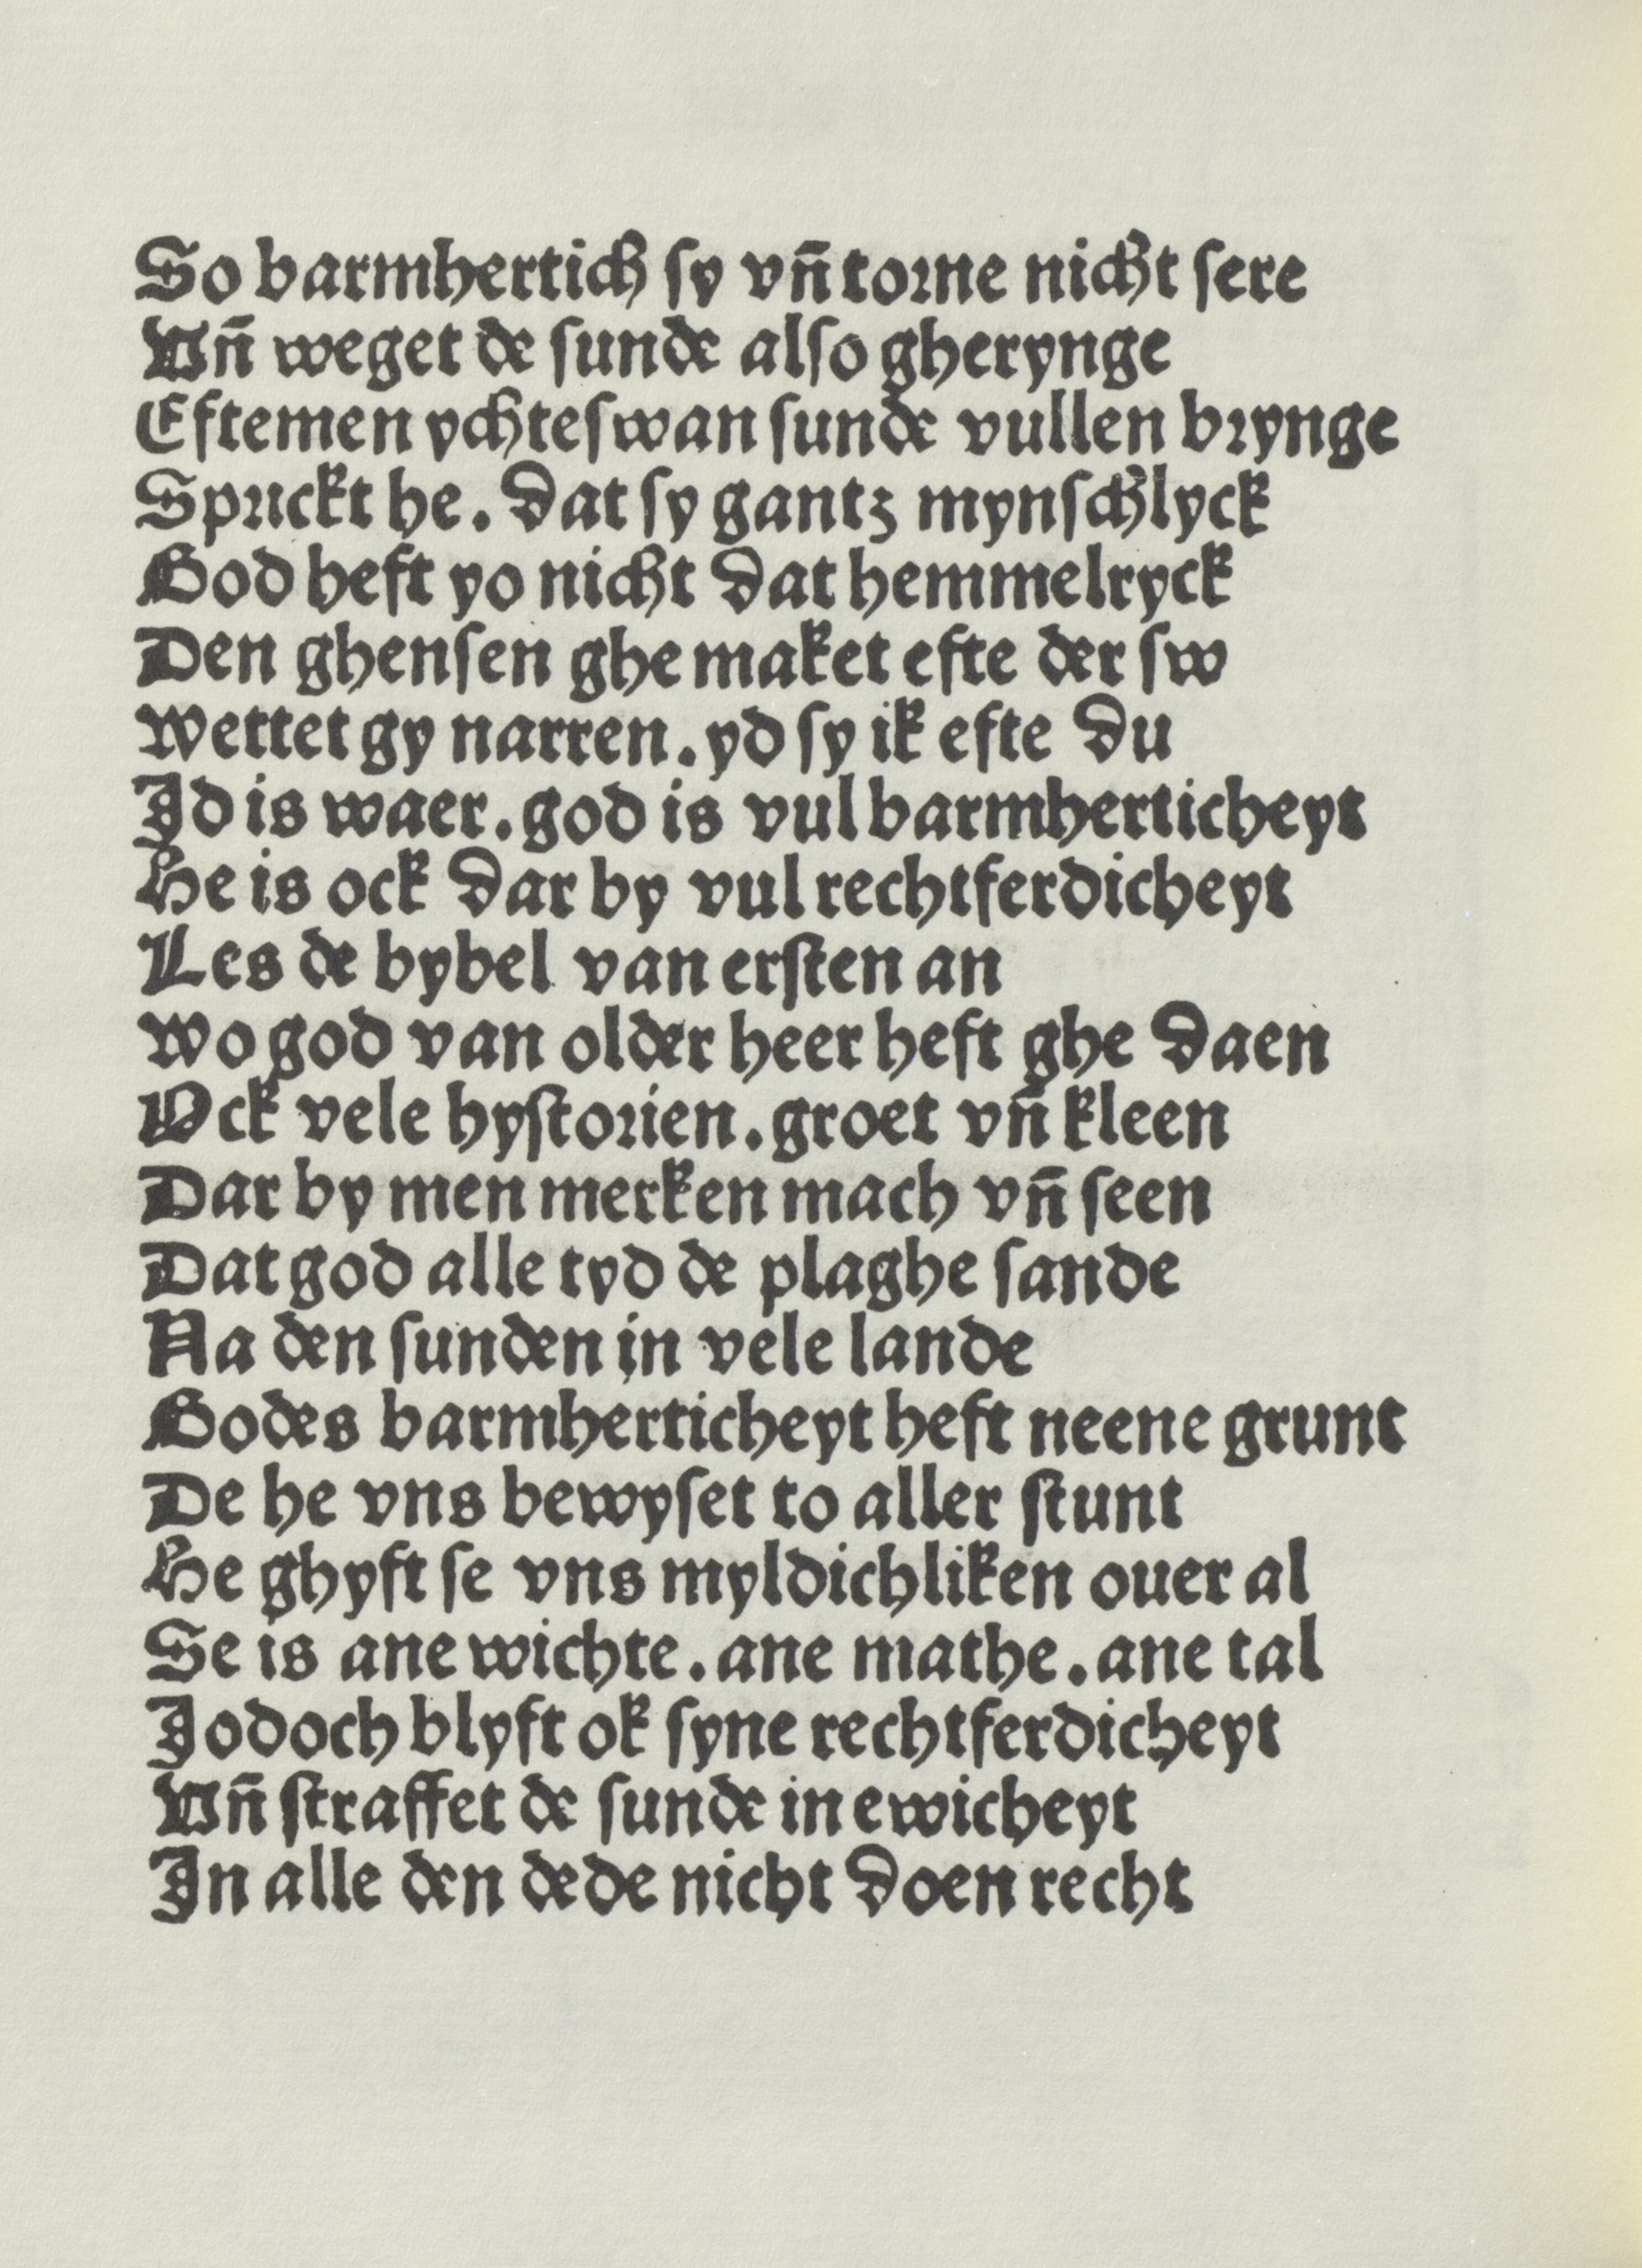 So barmhertich sy vn̄ torne nicht sere
Vn̄ weget de sunde also gherynge
Eftemen ychteswan sunde vullen brynge
Sprickt he. dat sy gantz mynschlyck
God heft yo nicht dat hemmelryck
Den ghensen ghe maket efte der sw
Wettet gy narren. yd sy ik efte du
Id is waer. god is vul barmherticheyt
He is ock dar by vul rechtferdicheyt
Les de bybel van ersten an
Wo god van older heer heft ghe daen
Ock vele hystorien. groet vn̄ kleen
Dar by men merken mach vn̄ seen
Dat god alle tyd de plaghe sande
Na den sunden in vele lande
Godes barmherticheyt heft neene grunt
De he vns bewyset to aller stunt
He ghyft se vns myldichliken ouer al
Se is ane wichte. ane mathe. ane tal
Jodoch blyft ok syne rechtferdicheyt
Vn̄ straffet de sunde in ewicheyt
In alle den dede nicht doen recht